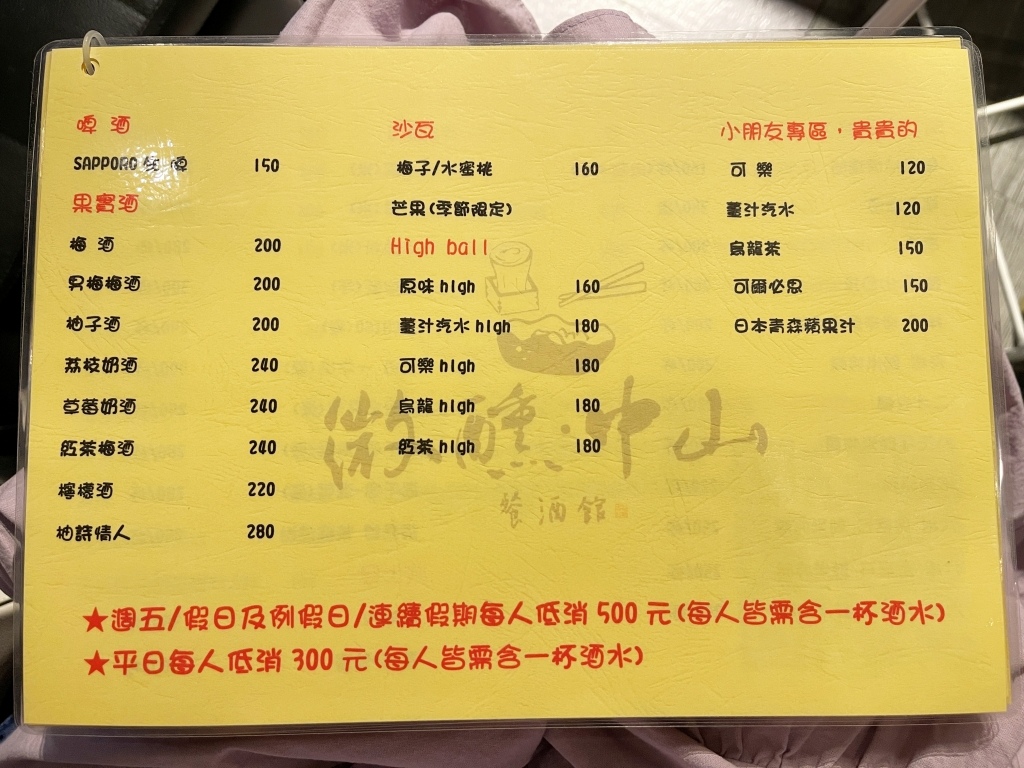 啤酒
SAPPORO 生啤 150
果實酒
梅酒 200
男梅梅酒 200
柚子酒 200
荔枝奶酒 240
草莓奶酒 240
紅茶梅酒 240
檸檬酒 220
柚詩情人 280
沙瓦
梅子/水蜜桃 160
芒果(季節限定)
High ball
原味high 160
薑汁汽水high 180
可樂high 180
烏龍high 180
紅茶high 180
小朋友專區，貴貴的
可樂 120
薑汁汽水 120
烏龍茶 150
可爾必思 150
日本青森蘋果汁 200
微醺·中山
餐酒館
★週五/假日及例假日/連續假期每人低消500元(每人皆需含一杯酒水)
★平日每人低消300元(每人皆需含一杯酒水)